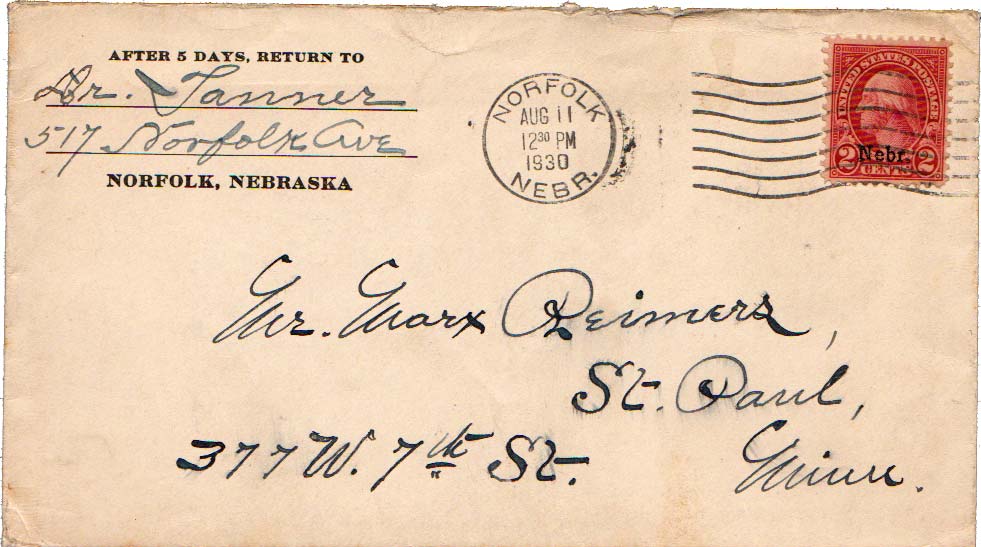 AFTER 5 DAYS, RETURN TO
Dr. Tanner
517 Norfolk Ave
NORFOLK, NEBRASKA
NORFOLK
AUG 11
12 30 PM
1930
NEBR.
UNITED STATES POSTAGE
Nebr.
2 CENTS 2
Mr. Marx Reimers,
St. Paul,
377 W. 7th St. Minn.